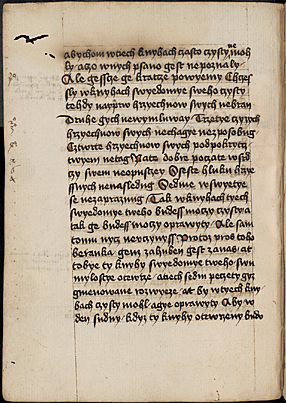 abychom w tiech knyhach czasto czysty moh
ly a czo w nych psano gest ne poznaly
Ale gessze ge kratze powyemy Chczes
ly w knyhach swedomye sweho czysty
tehdy naprw hrzyechow swych nebran
Druhe gych newymluway Trzetye czyych
hrzyechow swych nechagye nezposobug
Cztwrte hrzyechow swych podpokryt
twyem netag Pate dobre poczate w
zy swem neopusstey Sseste hluku hrzye
ssnych nenasledug Sedme w swyetye
se nezaprazniug Tak w knyhach tiech
swedomye tweho budess moczy czysty a
tak ge budess moczy oprawyty Ale sam
tomu nycz neuczynyss Protoz pros toho
beranka genz zabyben gest za nas at
tobye ty knyhy swedomye tweho swu
mylostye otewrze a tiech sedm peczety gyz
gmenowane rozwyeze at by w tiech kny
hach czysty mohl a gye oprawyty Aby w
den sudny kdyz ty knyhy otewrzeny budu